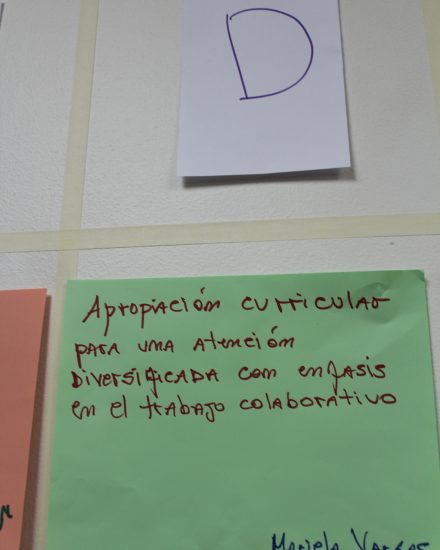 D
Apropiación curricular
para una atención
diversificada con enfasis
en el trabajo colaborativo
Mariela Vargas